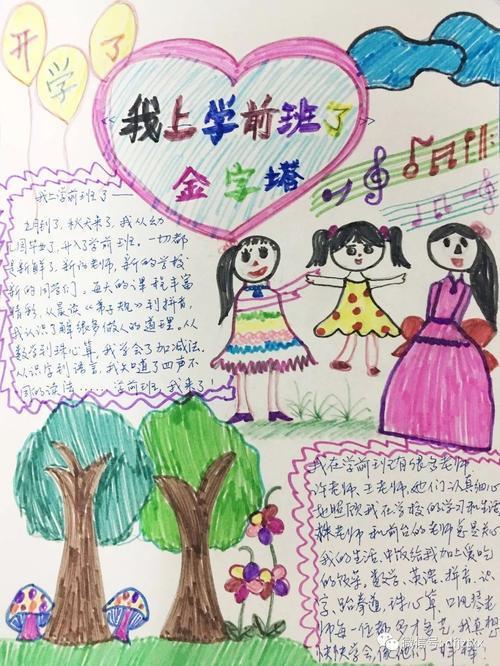 开
学
了
我上学前班了
金字塔
我上学前班了——
月到了,秋天来了,我从幼
园毕业了,升入了学前班,一切都
是新鲜了,新的老师,新的学校
新的同学们,每天的课程丰富
精彩,从晨读《弟子规》到拼音,
我认识了解很多做人的道理。从
数学到珠心算,我学会了加减法,
从识字到语言,我知道了四声不
同的读法……学前班,我来了!
我在学前班有很多老师
许老师、王老师,她们认真细心
地照顾我在学校的学习和生活,
老师和前台的老师总是关心
我的生活,中饭给我加上爱吃
的饭菜。数学、英语、拼音、识
字、跆拳道、珠心算、口风琴老
师每一位都多才多艺,我真想
快快学会,像他们一样棒!
微信号: